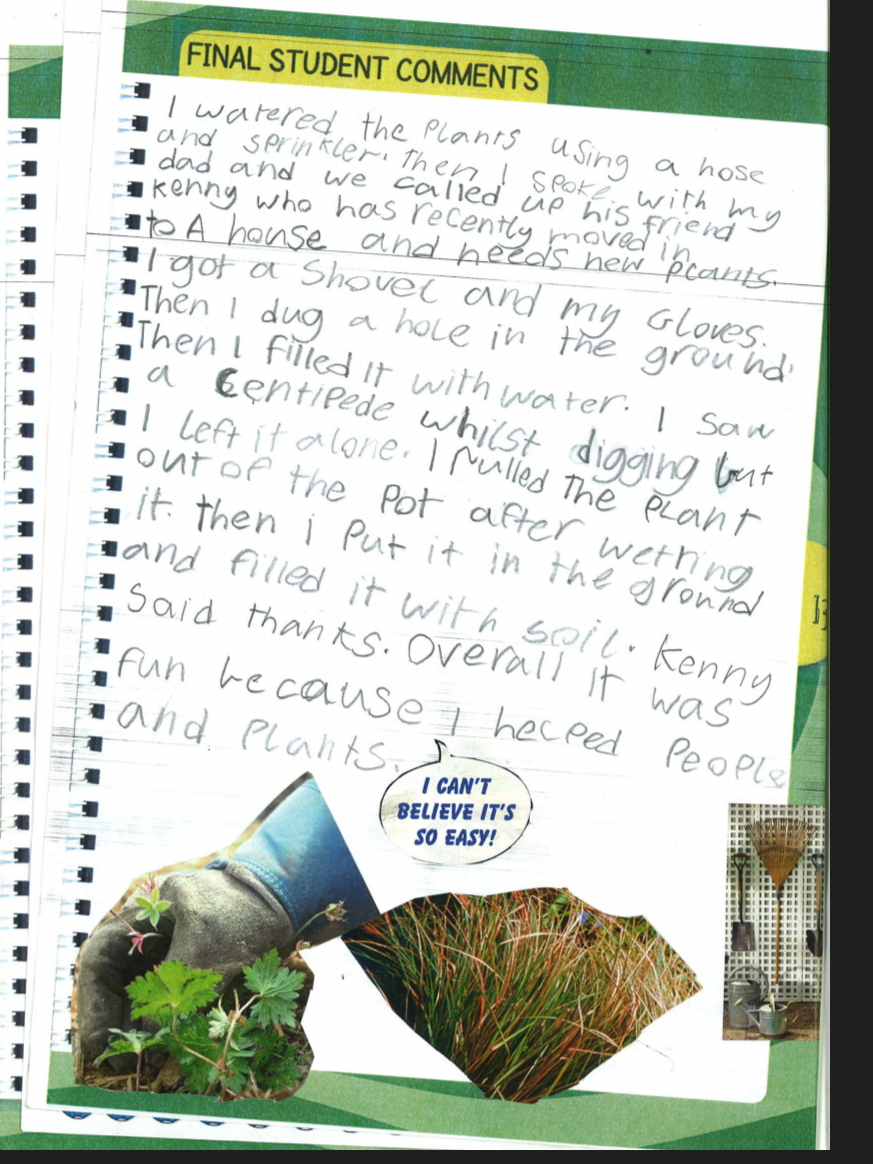 FINAL STUDENT COMMENTS
I watered the Plants using a hose
and sprinkler. Then I spoke with my
dad and we called up his friend
Kenny who has recently moved in
to A house and needs new plants.
I got a Shovel and my Gloves.
Then I dug a hole in the ground.
Then I filled It with water. I saw
a Centipede whilst digging but
I left it alone. I Pulled The Plant
out of the Pot after wetting
it. Then i Put it in the ground
and filled it with soil. Kenny
Said thanks. Overall It was
fun because I helped People
and Plants.
I CAN'T
BELIEVE IT'S
SO EASY!
13